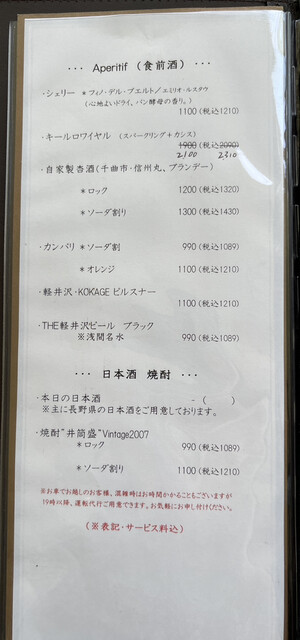 ··· Aperitif (食前酒) ···
・シェリー ＊フィノ・デル・プエルト／エミリオ・ルスタウ
(心地よいドライ、パン酵母の香り。)
1100(税込1210)
・キールロワイヤル (スパークリング＋カシス)
1900(税込2090)
2100 2310
・自家製杏酒(千曲市・信州丸、ブランデー)
＊ロック 1200(税込1320)
＊ソーダ割り 1300(税込1430)
・カンパリ ＊ソーダ割 990(税込1089)
＊オレンジ 1100(税込1210)
・軽井沢・KOKAGE ピルスナー
1100(税込1210)
・THE軽井沢ビール ブラック
※浅間名水 990(税込1089)
··· 日本酒 焼酎 ···
・本日の日本酒 －( )
※主に長野県の日本酒をご用意しております。
・焼酎”井筒盛”Vintage2007
＊ロック 990(税込1089)
＊ソーダ割り 1100(税込1210)
※お車でお越しのお客様、混雑時はお時間かかることもございますが
19時以降、運転代行ご用意できます。お気軽にお申し付けください。
(※表記・サービス料込)